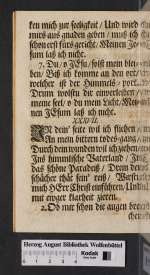 ken mich zur seeligkeit / Und wird
mirs aus gnaden geben / muß ich
schon erst fürs gericht. Meinen Je-
sum laß ich nicht.
7. Du / o JEsu / solst mein
ben / Biß ich komme an den ort /
welcher ist der Himmels-
Drum wollst du einverleiben /
meine seel / o du mein Licht. Mei
nen JEsum laß ich nicht.
XXXVII.
IN dein' seite wil ich fliehen /
An mein bittern todes-gang /
Durch dein wunden wil ich ziehen /
Ins himmlische Vaterland /
das schöne Paradeiß / Drein dein
schächer thät sein' reiß /
mich HErr Christ einführen / Und
mit ewger klarheit zieren.
2. Ob mir schon die augen brechen
Herzog August Bibliothek Wolfenbüttel
Kodak